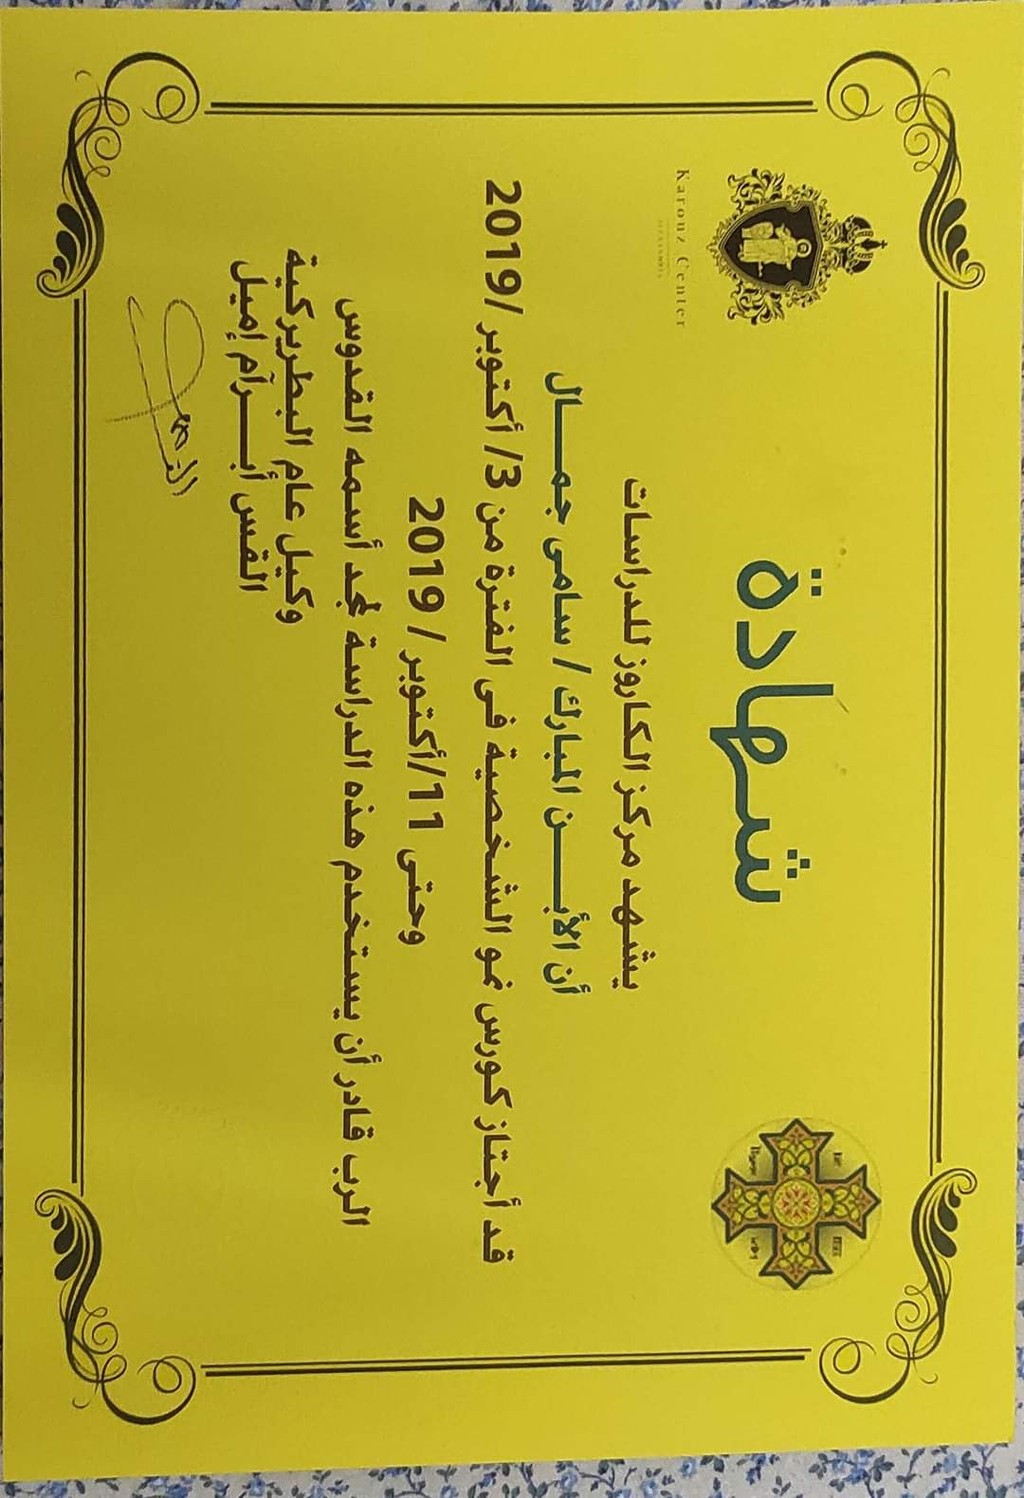 Karouz Center
شهادة
يشهد مركز الكاروز للدراسات
أن الأبـــن المبارك / سامى جمـــال
قد أجتاز كورس نمو الشخصية فى الفترة من 3/ أكتوبر /2019
وحتى 11/أكتوبر / 2019
الرب قادر أن يستخدم هذه الدراسة لمجد أسمه القدوس
وكيل عام البطريركية
القس أبـــرآم إميل